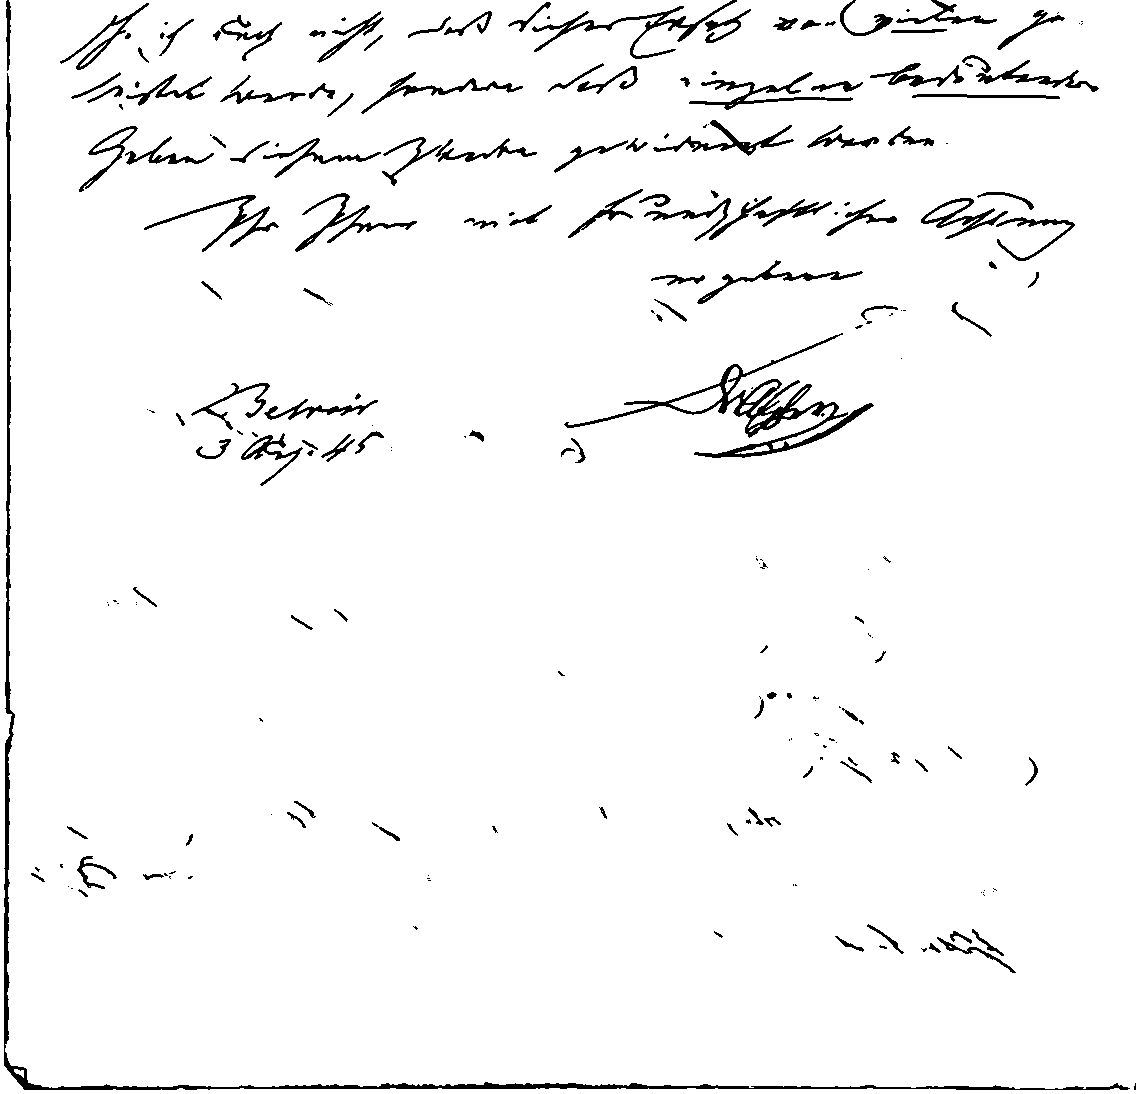 ich auch nicht, daß dieser Ersatz von vielen ge
leistet werde, sondern daß einzelne bedeutende
Gaben diesem Zwecke gewidmet werden
Ihr Ihnen mit freundschaftlicher Achtung
ergebene
3 Aug. 45